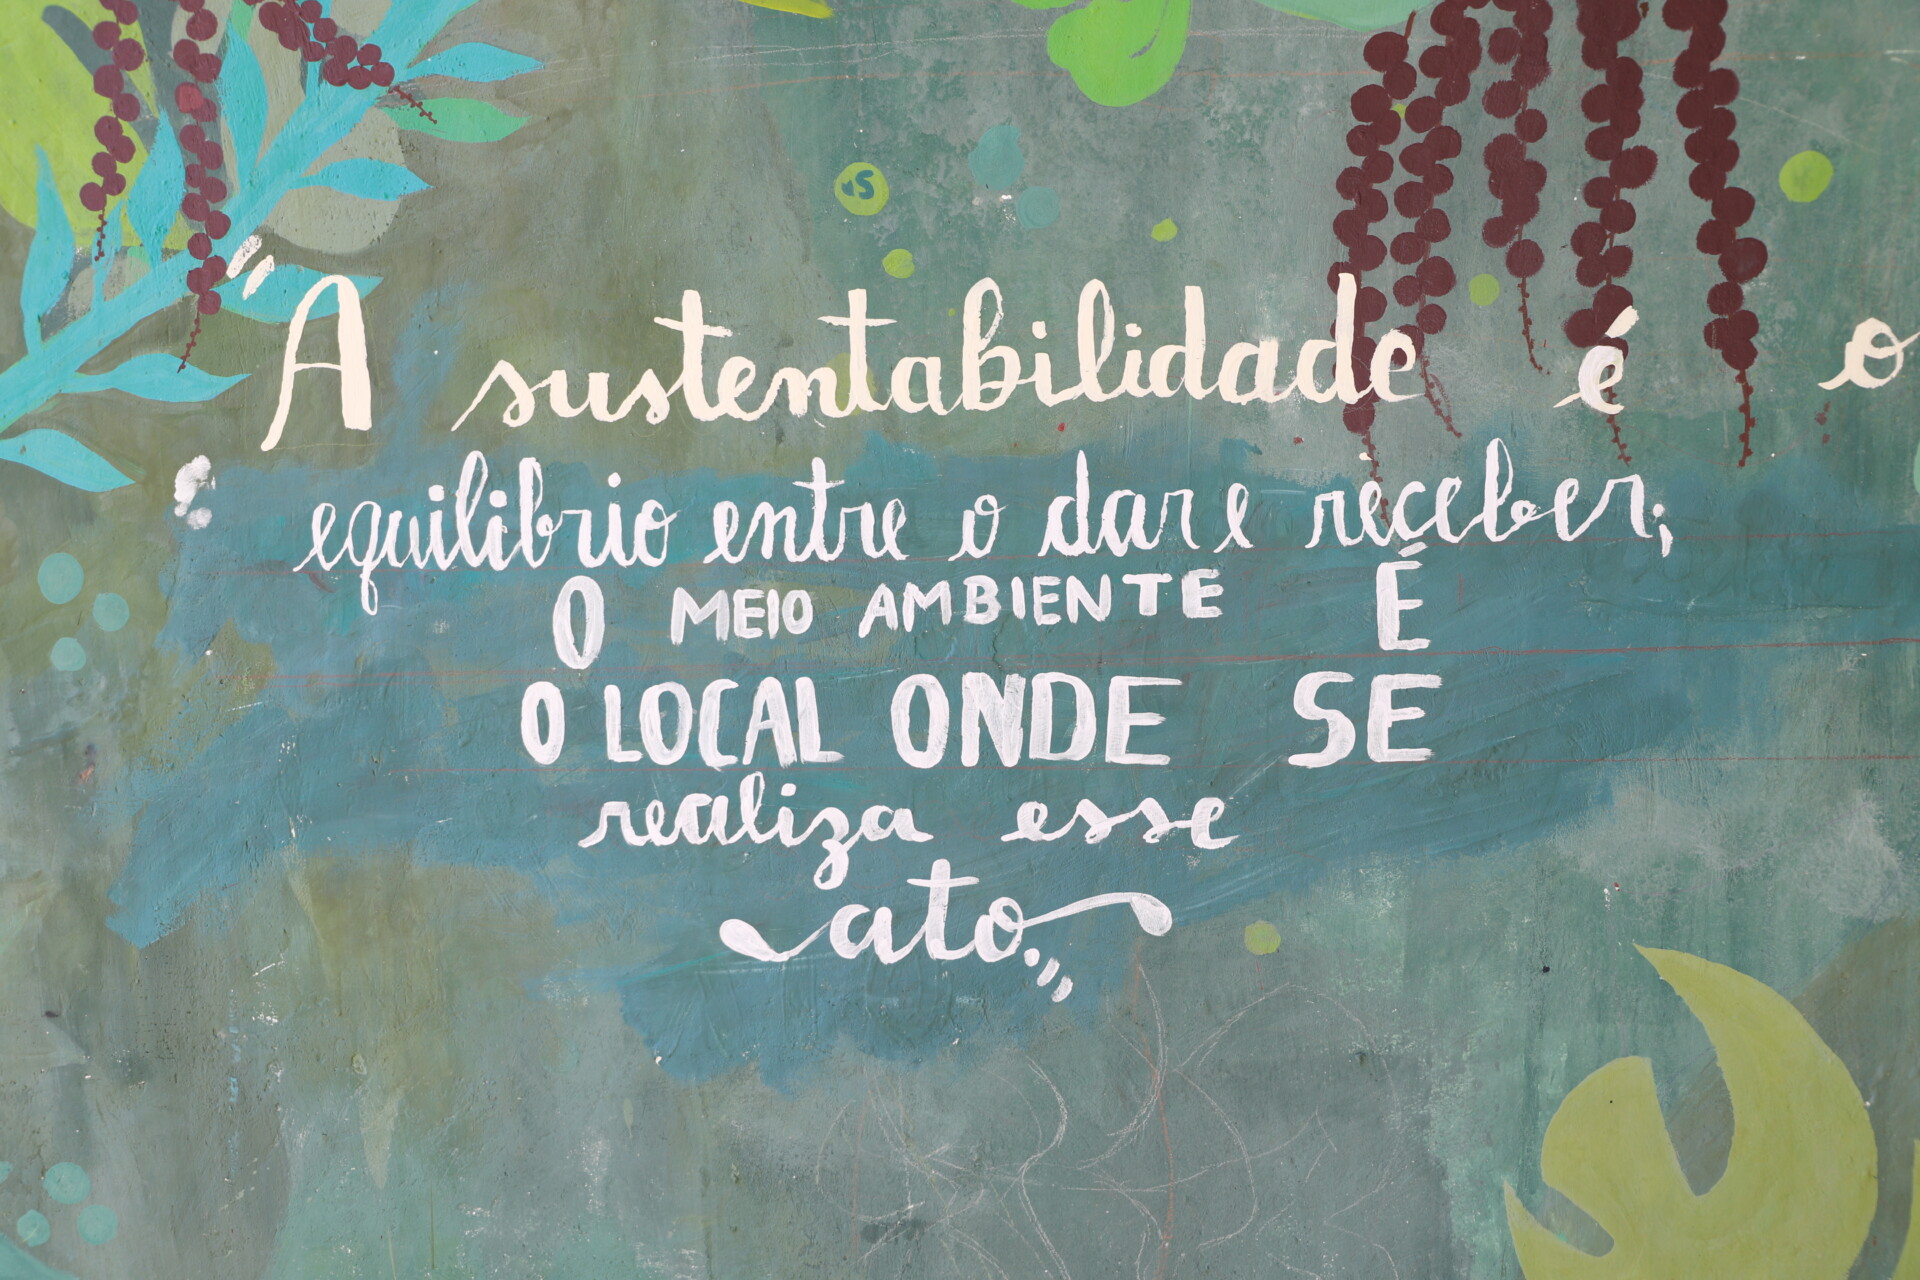 "A sustentabilidade é o
equilibrio entre o dar e receber;
O MEIO AMBIENTE É
O LOCAL ONDE SE
realiza esse
ato."